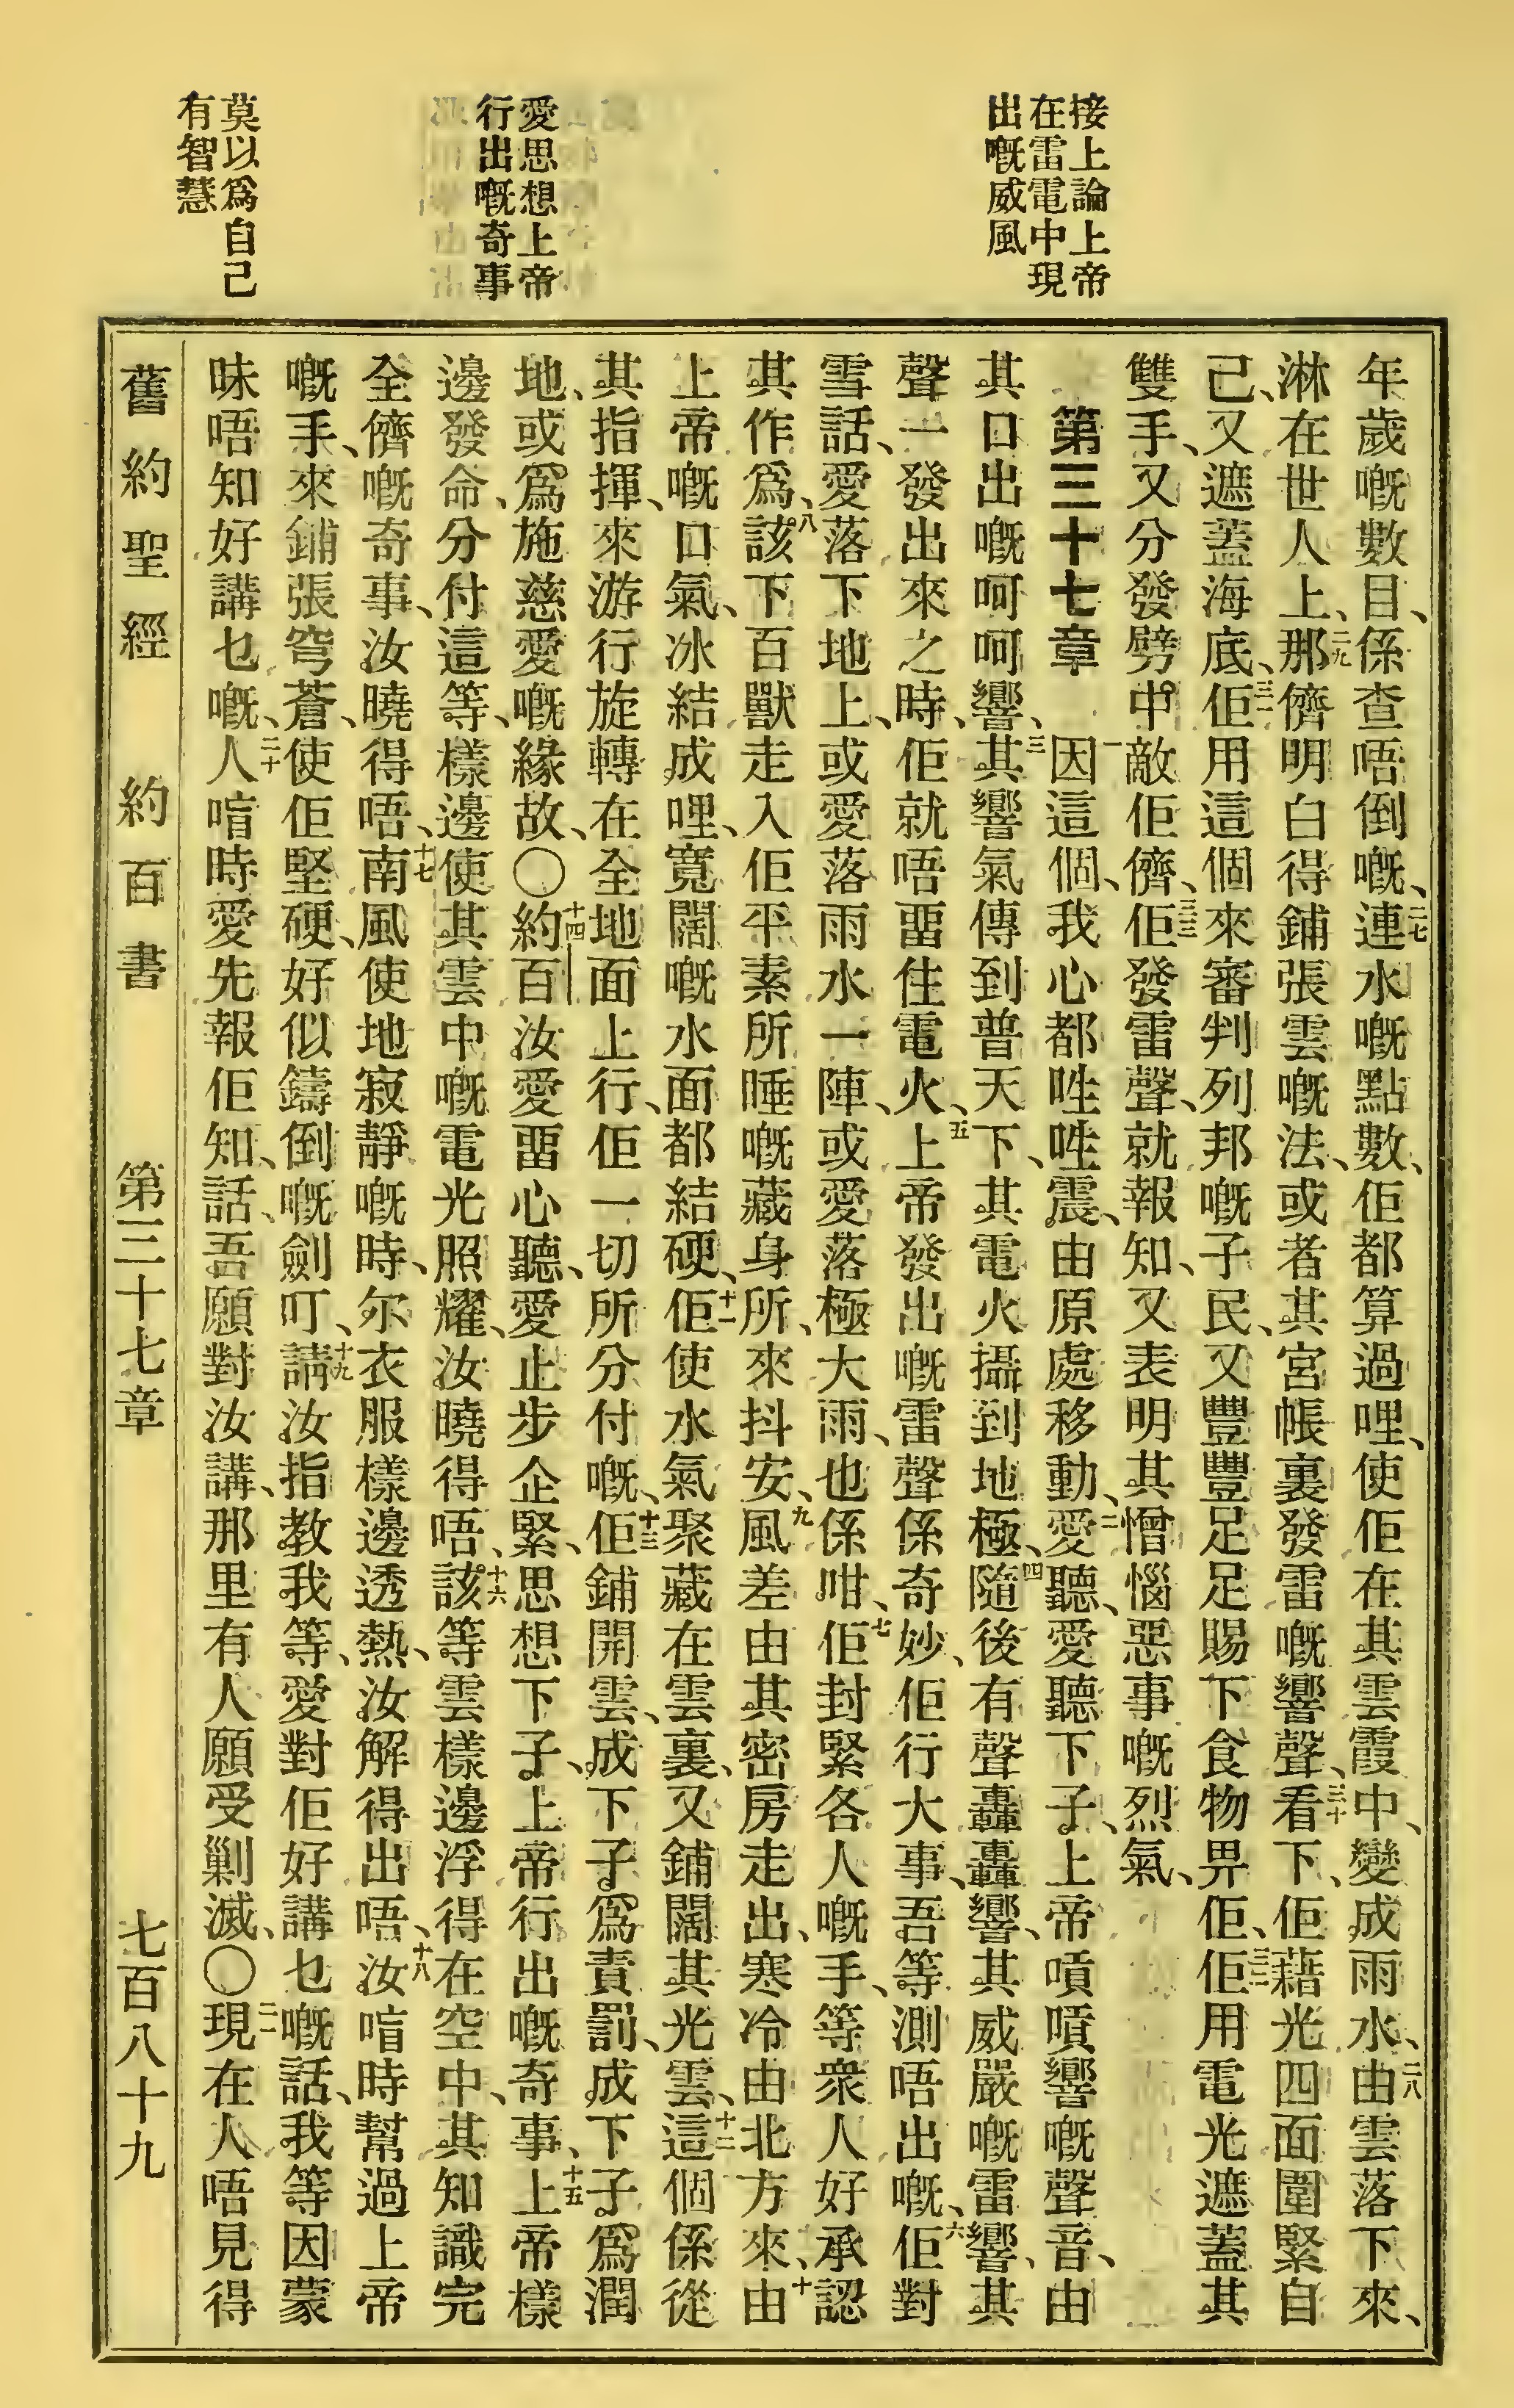 接上論上帝
在雷電中現
出嘅威風
愛思想上帝
行出嘅奇事
莫以爲自己
有智慧
年歲嘅數目、係查唔倒嘅、二七連水嘅點數、佢都算過哩、使佢在其雲霞中、變成雨水、二八由雲落下來、
淋在世人上、二九那儕明白得鋪張雲嘅法、或者其宮帳裏發雷嘅響聲、三十看下、佢藉光四面圍緊自
己、又遮蓋海底、三一佢用這個來審判列邦嘅子民、又豐豐足足賜下食物畀佢、三二佢用電光遮蓋其
雙手、又分發劈中敵佢儕、三三佢發雷聲、就報知、又表明其憎惱惡事嘅烈氣、
第三十七章 一因這個、我心都㖷㖷震、由原處移動、二愛聽、愛聽下子、上帝噴噴響嘅聲音、由
其口出嘅呵呵響、三其響氣傳到普天下、其電火攝到地極、四隨後有聲轟轟響、其威嚴嘅雷響、其
聲一發出來之時、佢就唔畱住電火、五上帝發出嘅雷聲係奇妙、佢行大事、吾等測唔出嘅、六佢對
雪話、愛落下地上、或愛落雨水一陣、或愛落極大雨、也係咁、七佢封緊各人嘅手、等衆人好承認
其作爲、八該下百獸走入佢平素所睡嘅藏身所、來抖安、九風差由其密房走出、寒冷由北方來、十由
上帝嘅口氣、冰結成哩、寬闊嘅水面都結硬、十一佢使水氣聚藏在雲裏、又鋪闊其光雲、十二這個係從
其指揮、來游行旋轉在全地面上行、佢一切所分付嘅、十三佢鋪開雲、成下子爲責罰、成下子爲潤
地、或爲施慈愛嘅緣故、〇十四約百汝愛畱心聽、愛止步企緊、思想下子、上帝行出嘅奇事、十五上帝樣
邊發命、分付這等、樣邊使其雲中嘅電光照耀、汝曉得唔、十六該等雲樣邊浮得在空中、其知識完
全儕嘅奇事、汝曉得唔、十七南風使地寂靜嘅時、尔衣服樣邊透熱、汝解得出唔、十八汝喑時幫過上帝
嘅手、來鋪張穹蒼、使佢堅硬、好似鑄倒嘅劍叮、十九請汝指教我等、愛對佢好講乜嘅話、我等因蒙
昧唔知好講乜嘅、二十人喑時愛先報佢知、話、吾願對汝講、那里有人願受剿滅、〇二一現在人唔見得
舊約聖經 約百書 第三十七章 七百八十九